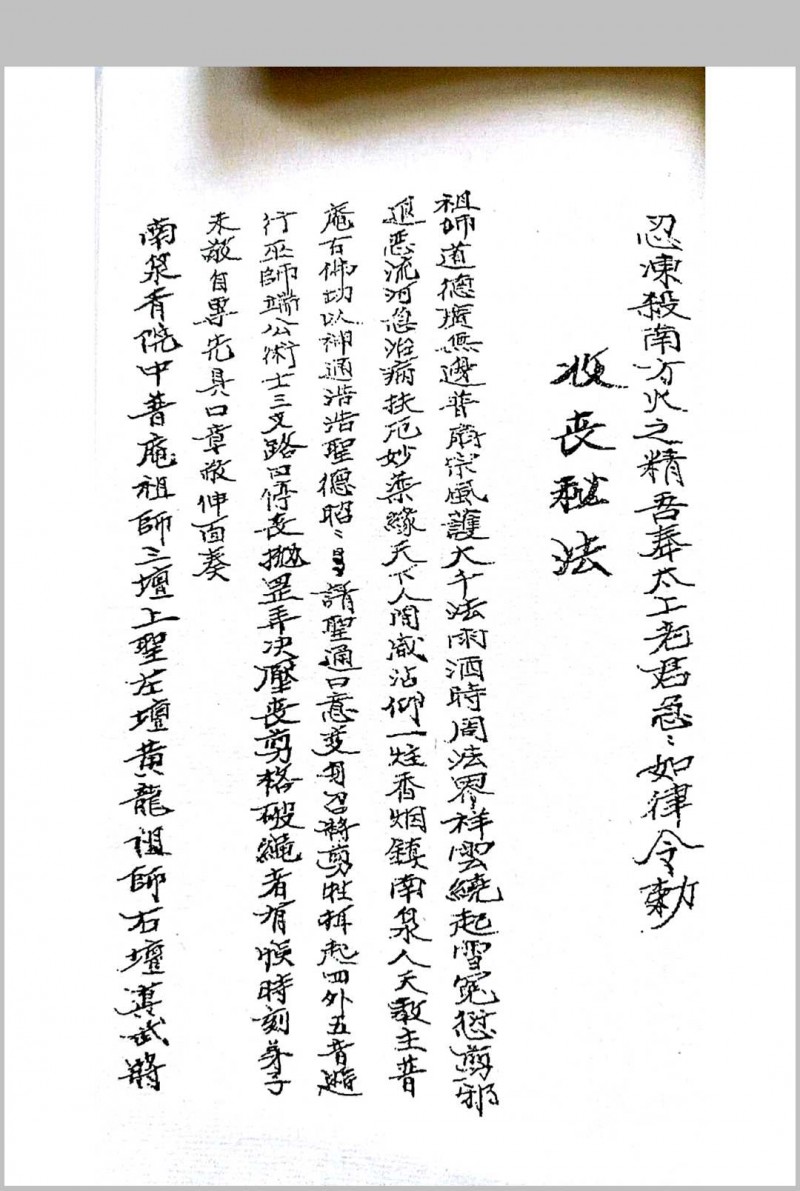 忍凍殺南方火之精吾奉太上老君急〻如律令勅
收喪秘法
祖師道德廣無邊普庵宗風護大千法雨洒時周法界祥雲繞起雪冤愆剪邪
追惡流河急治病扶厄妙藥緣天下人間咸沾仰一炷香烟鎮南泉人天教主普
庵古佛切以神通浩浩聖德昭〻請聖通口意變身召將剪牲揖起四外五音遊
行巫師端公術士三叉路口停喪拋罡弄決壓喪剪格破繩者有悞時刻弟子
未敢自專先具口章敬伸面奏
南泉香院中普庵祖師三壇上聖左壇黃龍祖師右壇真武將